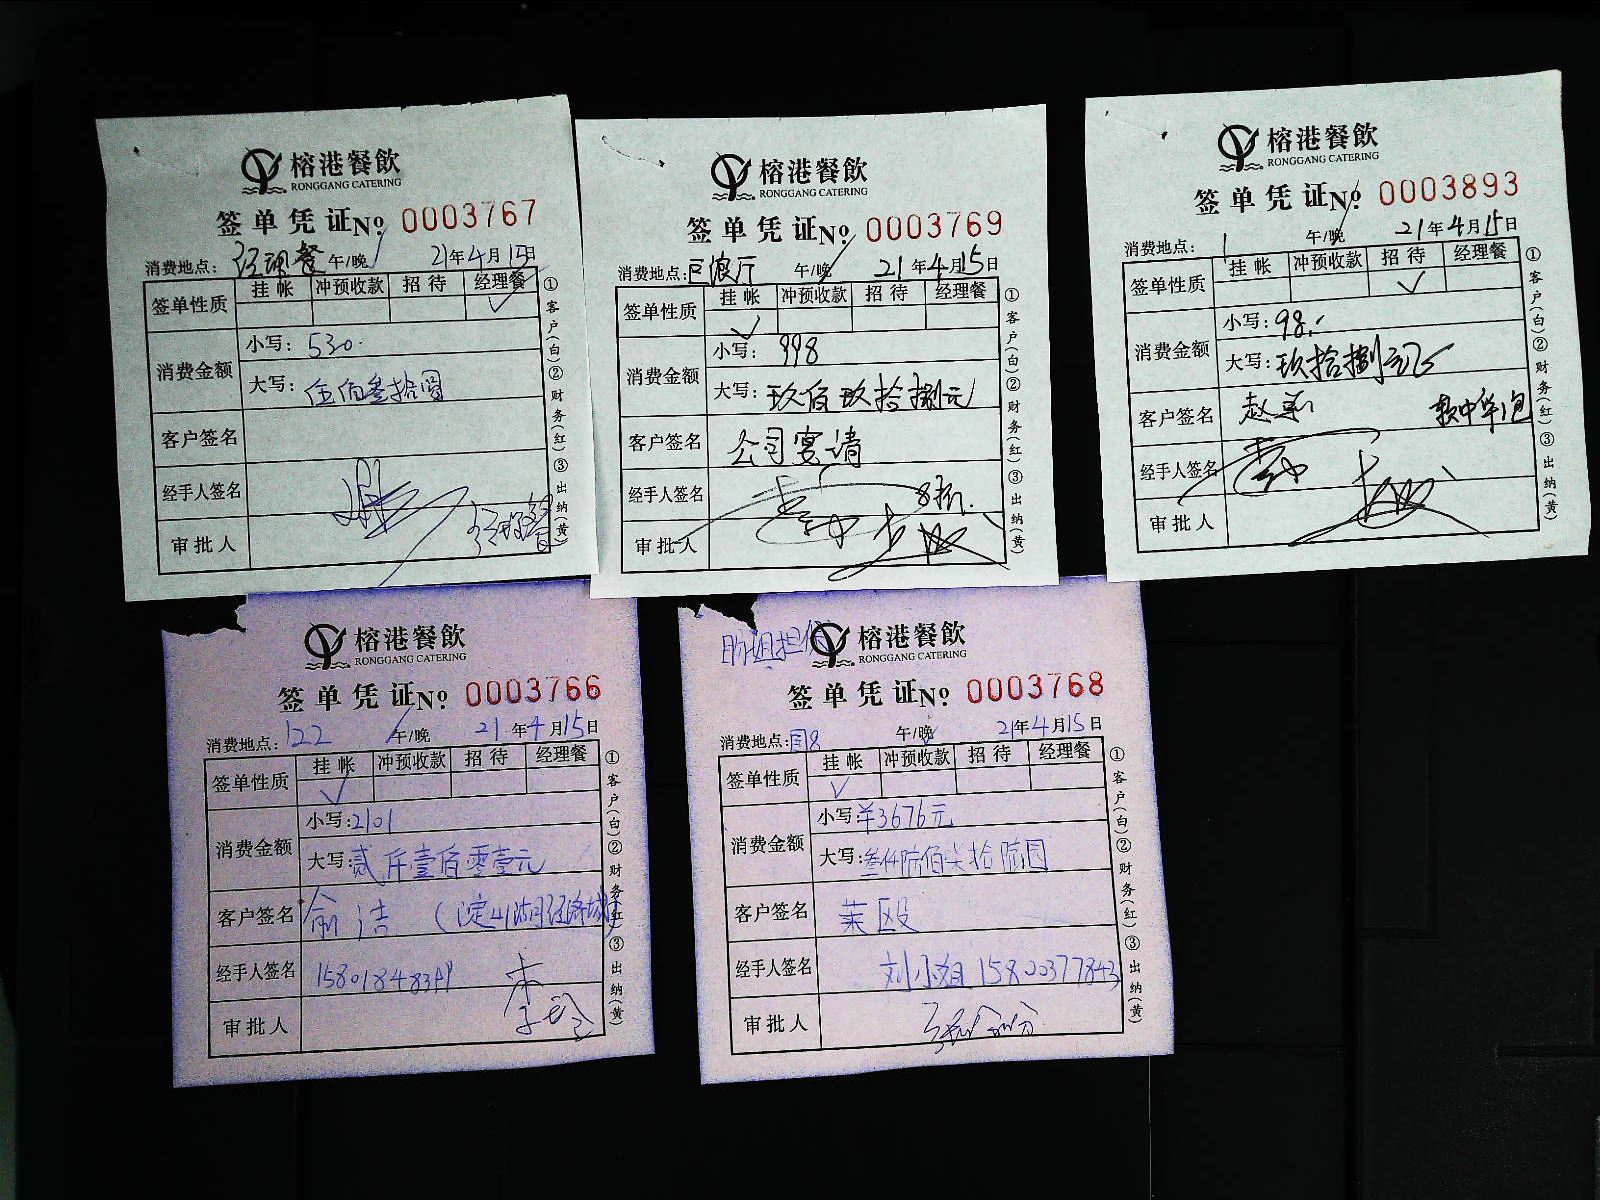 榕港餐飲
RONGGANG CATERING
签单凭证No 0003767
消费地点: 经理餐 午/晚 21年4月15日
签单性质 挂帐 冲预收款 招待 经理餐
✓
消费金额
小写: 530.
大写: 伍佰叁拾圆
客户签名
经手人签名
审批人
经理餐
①客户(白)②财务(红)③出纳(黄)
榕港餐飲
RONGGANG CATERING
签单凭证No 0003769
消费地点: 巨浪厅 午/晚 21年4月15日
签单性质 挂帐 冲预收款 招待 经理餐
✓
消费金额
小写: 998
大写: 玖佰玖拾捌元
客户签名 公司宴请
经手人签名 8折.
审批人
①客户(白)②财务(红)③出纳(黄)
榕港餐飲
RONGGANG CATERING
签单凭证No 0003893
消费地点: 午/晚 21年4月15日
签单性质 挂帐 冲预收款 招待 经理餐
✓
消费金额
小写: 98.-
大写: 玖拾捌元
客户签名 软中华1包
经手人签名
审批人
①客户(白)②财务(红)③出纳(黄)
榕港餐飲
RONGGANG CATERING
签单凭证No 0003766
消费地点: 122 午/晚 21年4月15日
签单性质 挂帐 冲预收款 招待 经理餐
✓
消费金额
小写: 2101
大写: 贰仟壹佰零壹元
客户签名 俞洁 (淀山湖经济城)
经手人签名
审批人
①客户(白)②财务(红)③出纳(黄)
榕港餐飲
RONGGANG CATERING
签单凭证No 0003768
消费地点: 午/晚 21年4月15日
签单性质 挂帐 冲预收款 招待 经理餐
✓
消费金额
小写: ¥3676元
大写: 叁仟陆佰柒拾陆圆
客户签名
经手人签名 刘小姐 15800377843
审批人
①客户(白)②财务(红)③出纳(黄)